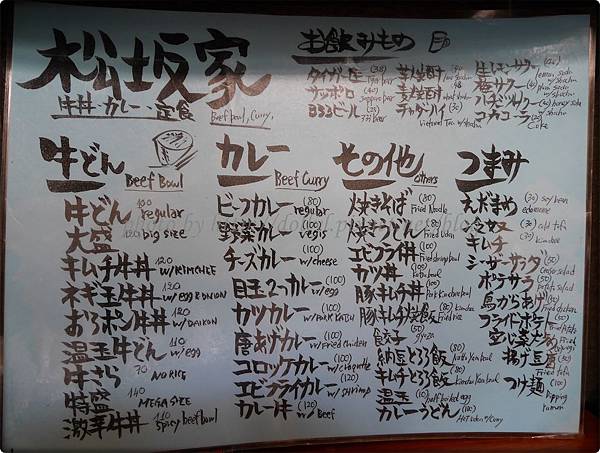 松坂家
牛丼・カレー・定食
Beef bowl, Curry,
お飲みもの
タイガー正 (38) Tiger beer
サッポロ (40) sapporo beer
333ビール (25) 333 Beer
芋焼酎 (40)
麦焼酎 (40)
チャダーハイ (30) Vietnam Tea w/shochu
生レモンサワー (40) lemon soda w/shochu
梅サワー (40) plum soda w/shochu
ハチミツサワー (40) honey soda w/shochu
コカコーラ (20) Coke
牛どん Beef Bowl
牛どん 100 regular
大盛 120 big size
キムチ牛丼 120 w/KIMCHEE
ネギ玉牛丼 120 w/EGG & ONION
おろポン牛丼 120 w/DAIKON
温玉牛どん 110 w/egg
牛さら 70 NO RICE
特盛 140 MEGA SIZE
激辛牛丼 110 spicy beef bowl
カレー Beef Curry
ビーフカレー (80) regular
野菜カレー (100) vegi's
チーズカレー (100) w/cheese
目玉2つカレー (100) w/egg
カツカレー (100) w/PORK KATSU
唐あげカレー (100) w/Fried Chicken
コロッケカレー (100) w/croquette
エビフライカレー (100) w/shrimp
カレー牛 (120) w/Beef
その他 others
焼きそば (80) Fried Noodle
焼きうどん (80) Fried Udon
エビフライ丼 (100)
カツ丼 (100)
豚キムチ丼 (100) Pork Kimchee bowl
豚キムチ炒飯 (80) Fried rice
餃子 (50) gyoza
納豆とろろ飯 (80)
キムチとろろ飯 (80)
温玉 (10) half boiled egg
カレーうどん (100) Hot Udon w/curry
つまみ
えだまめ (30) soy bean edamame
冷ヤッコ (30) cold tofu
キムチ (30) kimchee
シーザーサラダ (50) Caesar salad
ポテサラ (50) potato salad
鳥からあげ (50) Fried chicken
フライドポテト Fried Potato
揚げ豆腐 (50) Fried tofu
つけ麺 (100) Dipping ramen